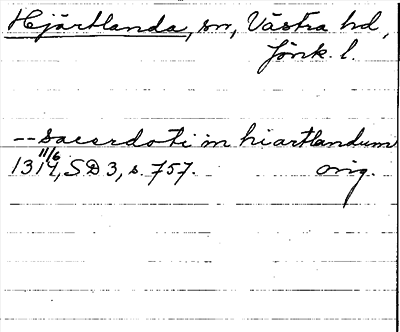 Hjärtlanda, sn, Västra hd,
Jönk. l.
-- sacerdoti in hiartlandum
11/6
1314, SD 3, s. 757. orig.